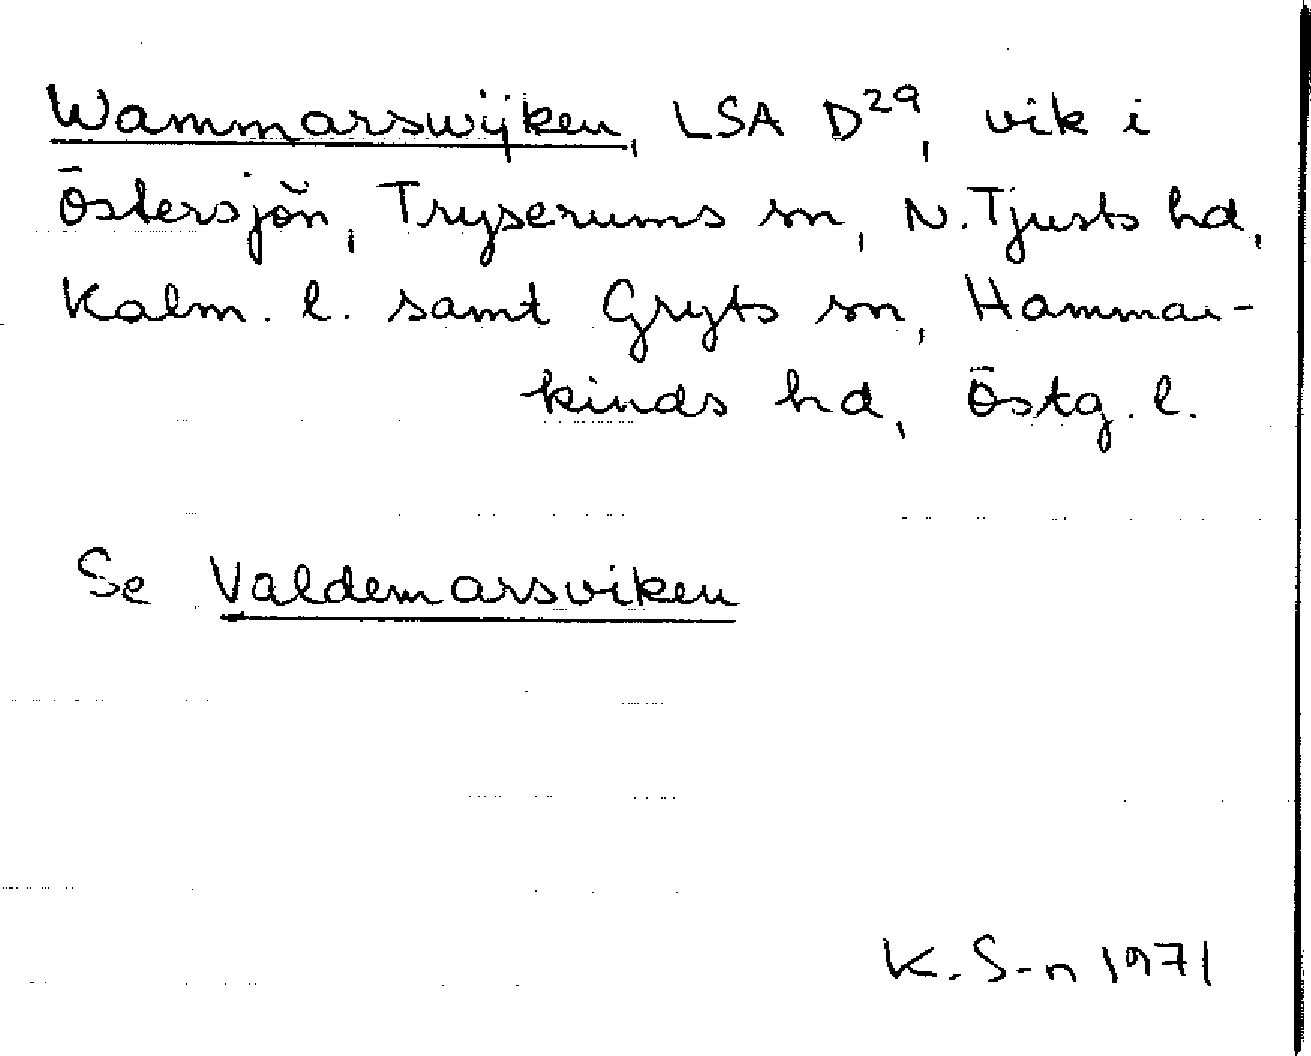 Wammarswijken, LSA D29, vik i
Östersjön, Tryserums sn, N. Tjusts hd,
Kalm. l. samt Gryts sn, Hammar-
kinds hd, Östg. l.
Se Valdemarsviken
K. S-n 1971